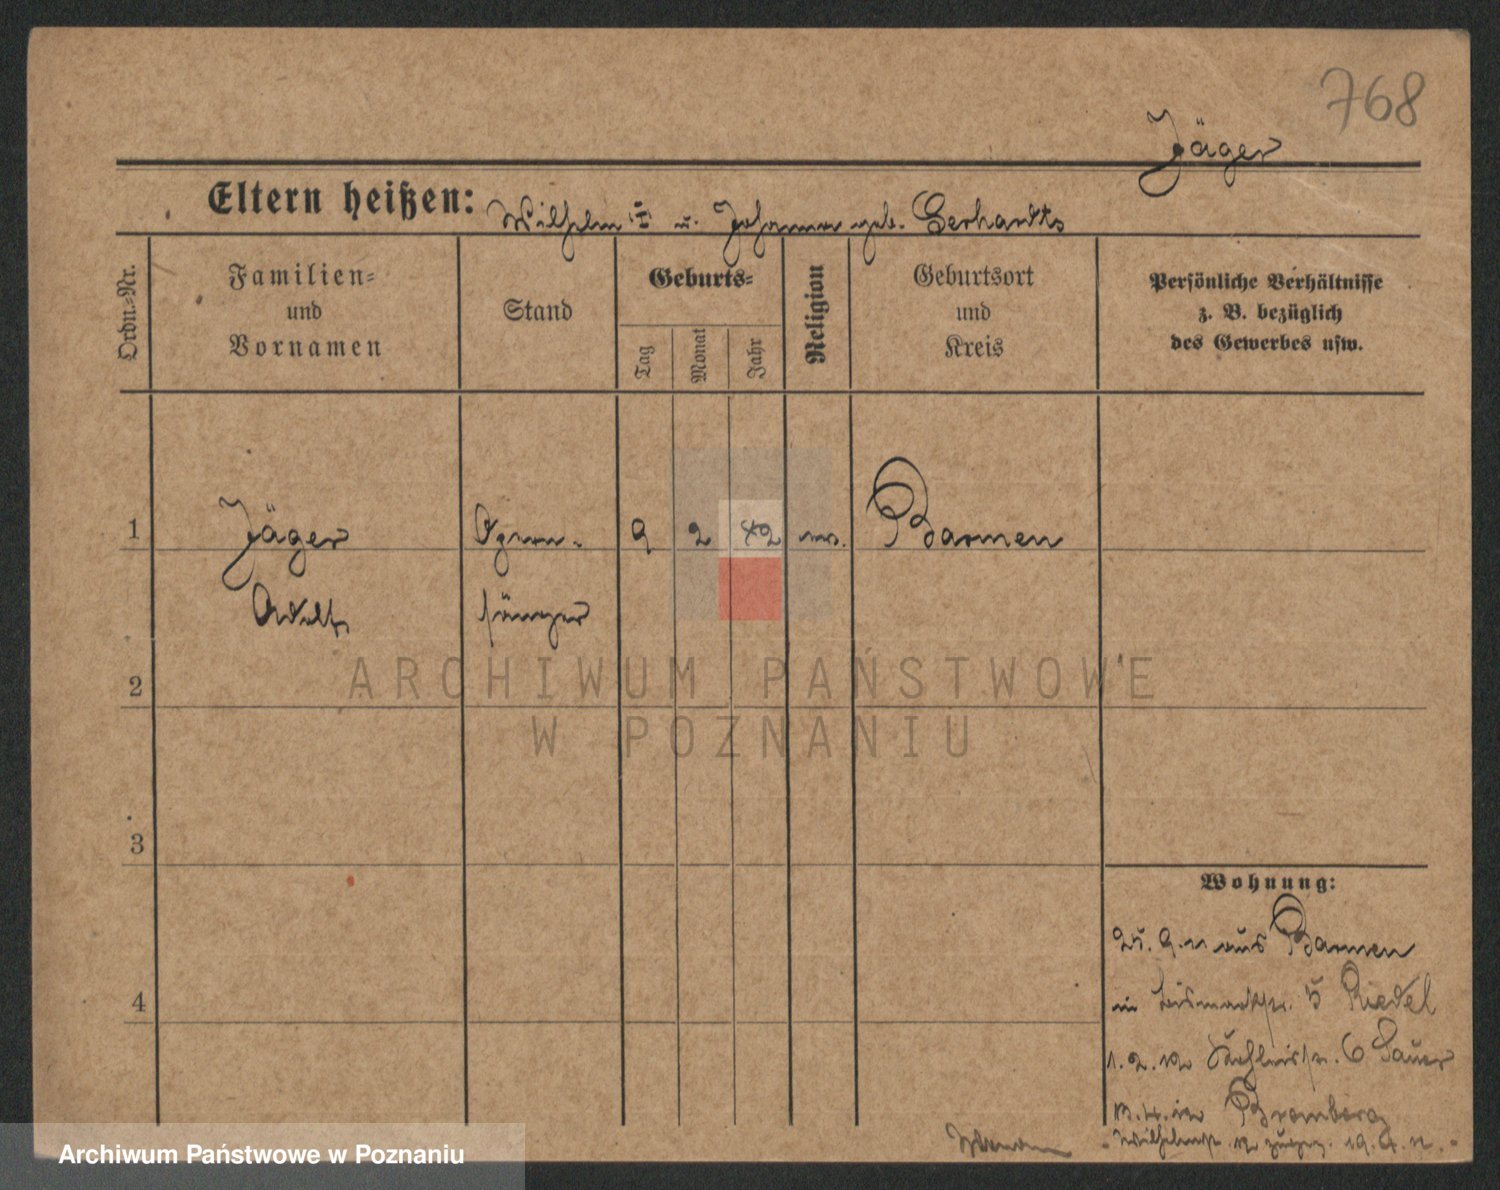 768
Jäger
Eltern heißen: Wilhelm u. Johanna geb. Gerhardts
Ordn.-Nr.
Familien-
und
Vornamen
Stand
Geburts-
Tag
Monat
Jahr
Religion
Geburtsort
und
Kreis
Persönliche Verhältnisse
z. B. bezüglich
des Gewerbes usw.
1 Jäger Opern- 9 2 82 Barmen
Adolf sänger
2
ARCHIWUM PAŃSTWOWE
W POZNANIU
3
4
Wohnung:
25. 9. 11 aus Barmen
in Bismarckstr. 5 Riedel
1. 2. 12 6 Sauer
Bromberg
Wilhelmstr. 19. 4. 12.
Archiwum Państwowe w Poznaniu